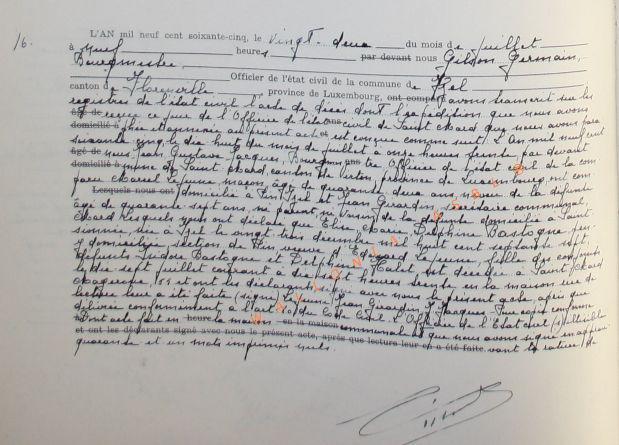 16.
L'AN mil neuf cent soixante-cinq, le vingt-deux du mois de juillet
à neuf heures par devant nous Gilson Germain,
Bourgmestre Officier de l'état civil de la commune de Izel
canton de Florenville province de Luxembourg, ont comparu avons transcrit sur les
registres de l'état civil l'acte de décès dont l'expédition que nous avons
âgé de reçue ce jour de l'Officier de l'état civil de Saint Mard que nous avons para
domicilié à phée annexée au présent acte est conçue comme suit. L'An mil neuf cent
soixante cinq, le dix huit du mois de juillet à onze heures trente, par devant
âgé de nous Jean Gustave Jacques, Bourgmestre Officier de l'état civil de la com
domicilié à mune de Saint Mard, canton de Virton, province de Luxembourg ont com
paru Marcel Lejeune maçon, âgé de quarante deux ans, neveu de la défunte
Lesquels nous ont domicilié à Izel et Jean Girardin, secrétaire communal,
âgé de quarante sept ans ni parent, ni voisin de la défunte domicilié à Saint
Mard lesquels nous ont déclaré que Elise Marie Delphine Bastogne pen-
sionnée née à Izel le vingt trois décembre mil huit cent septante sept,
y domiciliée section de Pin veuve d'Edouard Lejeune, fille des conjoints
défunts Isidore Bastogne et Delphine Halet, est décédée à Saint Mard
le dix sept juillet courant à dix sept heures trente en la maison rue de
55 et ont les déclarants signé avec nous le présent acte, après que
lecture leur a été faite (signé) Lejeune, Jean Girardin, J. Jacques. Pour copie conforme
délivrée conformément à l'art. 80 du Code Civil. L'Officier de l'Etat civil (s) illisible
Dont acte fait en heure la maison en la maison communale que nous avons signé
et ont les déclarants signé avec nous le présent acte, après que lecture leur en a été faite. vant la rature de
quarante et un mots imprimés nuls.